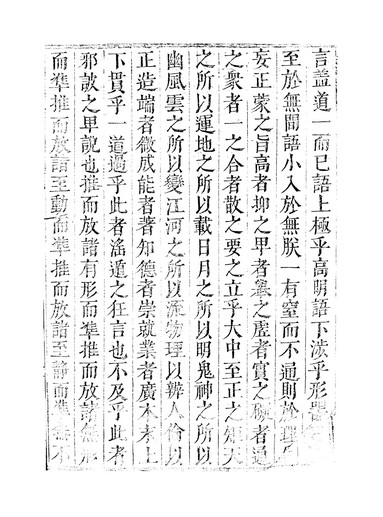 言蓋道一而已語上極乎高明語下涉乎形器
至於無間語小入於無朕一有窒而不通則於理
妄正蒙之旨高者抑之卑者舉之虛者實之礙者通
之衆者一之合者散之要之立乎大中至正之矩天
之所以運地之所以載日月之所以明鬼神之所以
幽風雲之所以變江河之所以流物理以辨人倫以
正造端者微成能者著知德者崇就業者廣本末上
下貫乎一道過乎此者滛遁之狂言也不及乎此者
邪詖之卑說也推而放諸有形而準推而放諸無形
而準推而放諸至動而準推而放諸至靜而準無不